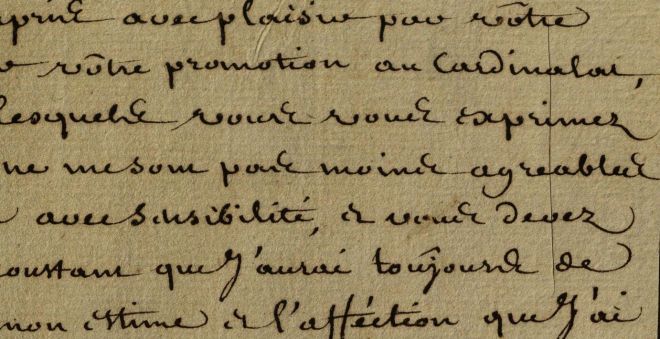 pris avec plaisir par vôtre
vôtre promotion au Cardinalat,
lesquels vous vous exprimez
ne me sont pas moins agreables
avec sensibilité, et vous devez
constant que J'aurai toûjours de
mon estime et l'afféction que J'ai